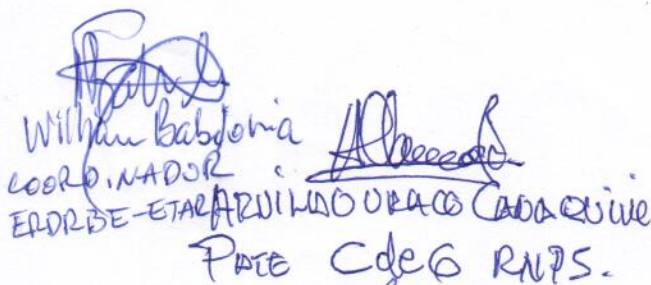 William Babilonia
COORDINADOR
ERDRBE-ETAR
ARVILDO URACO CANAQUIVE
PDTE CdeG RNPS.